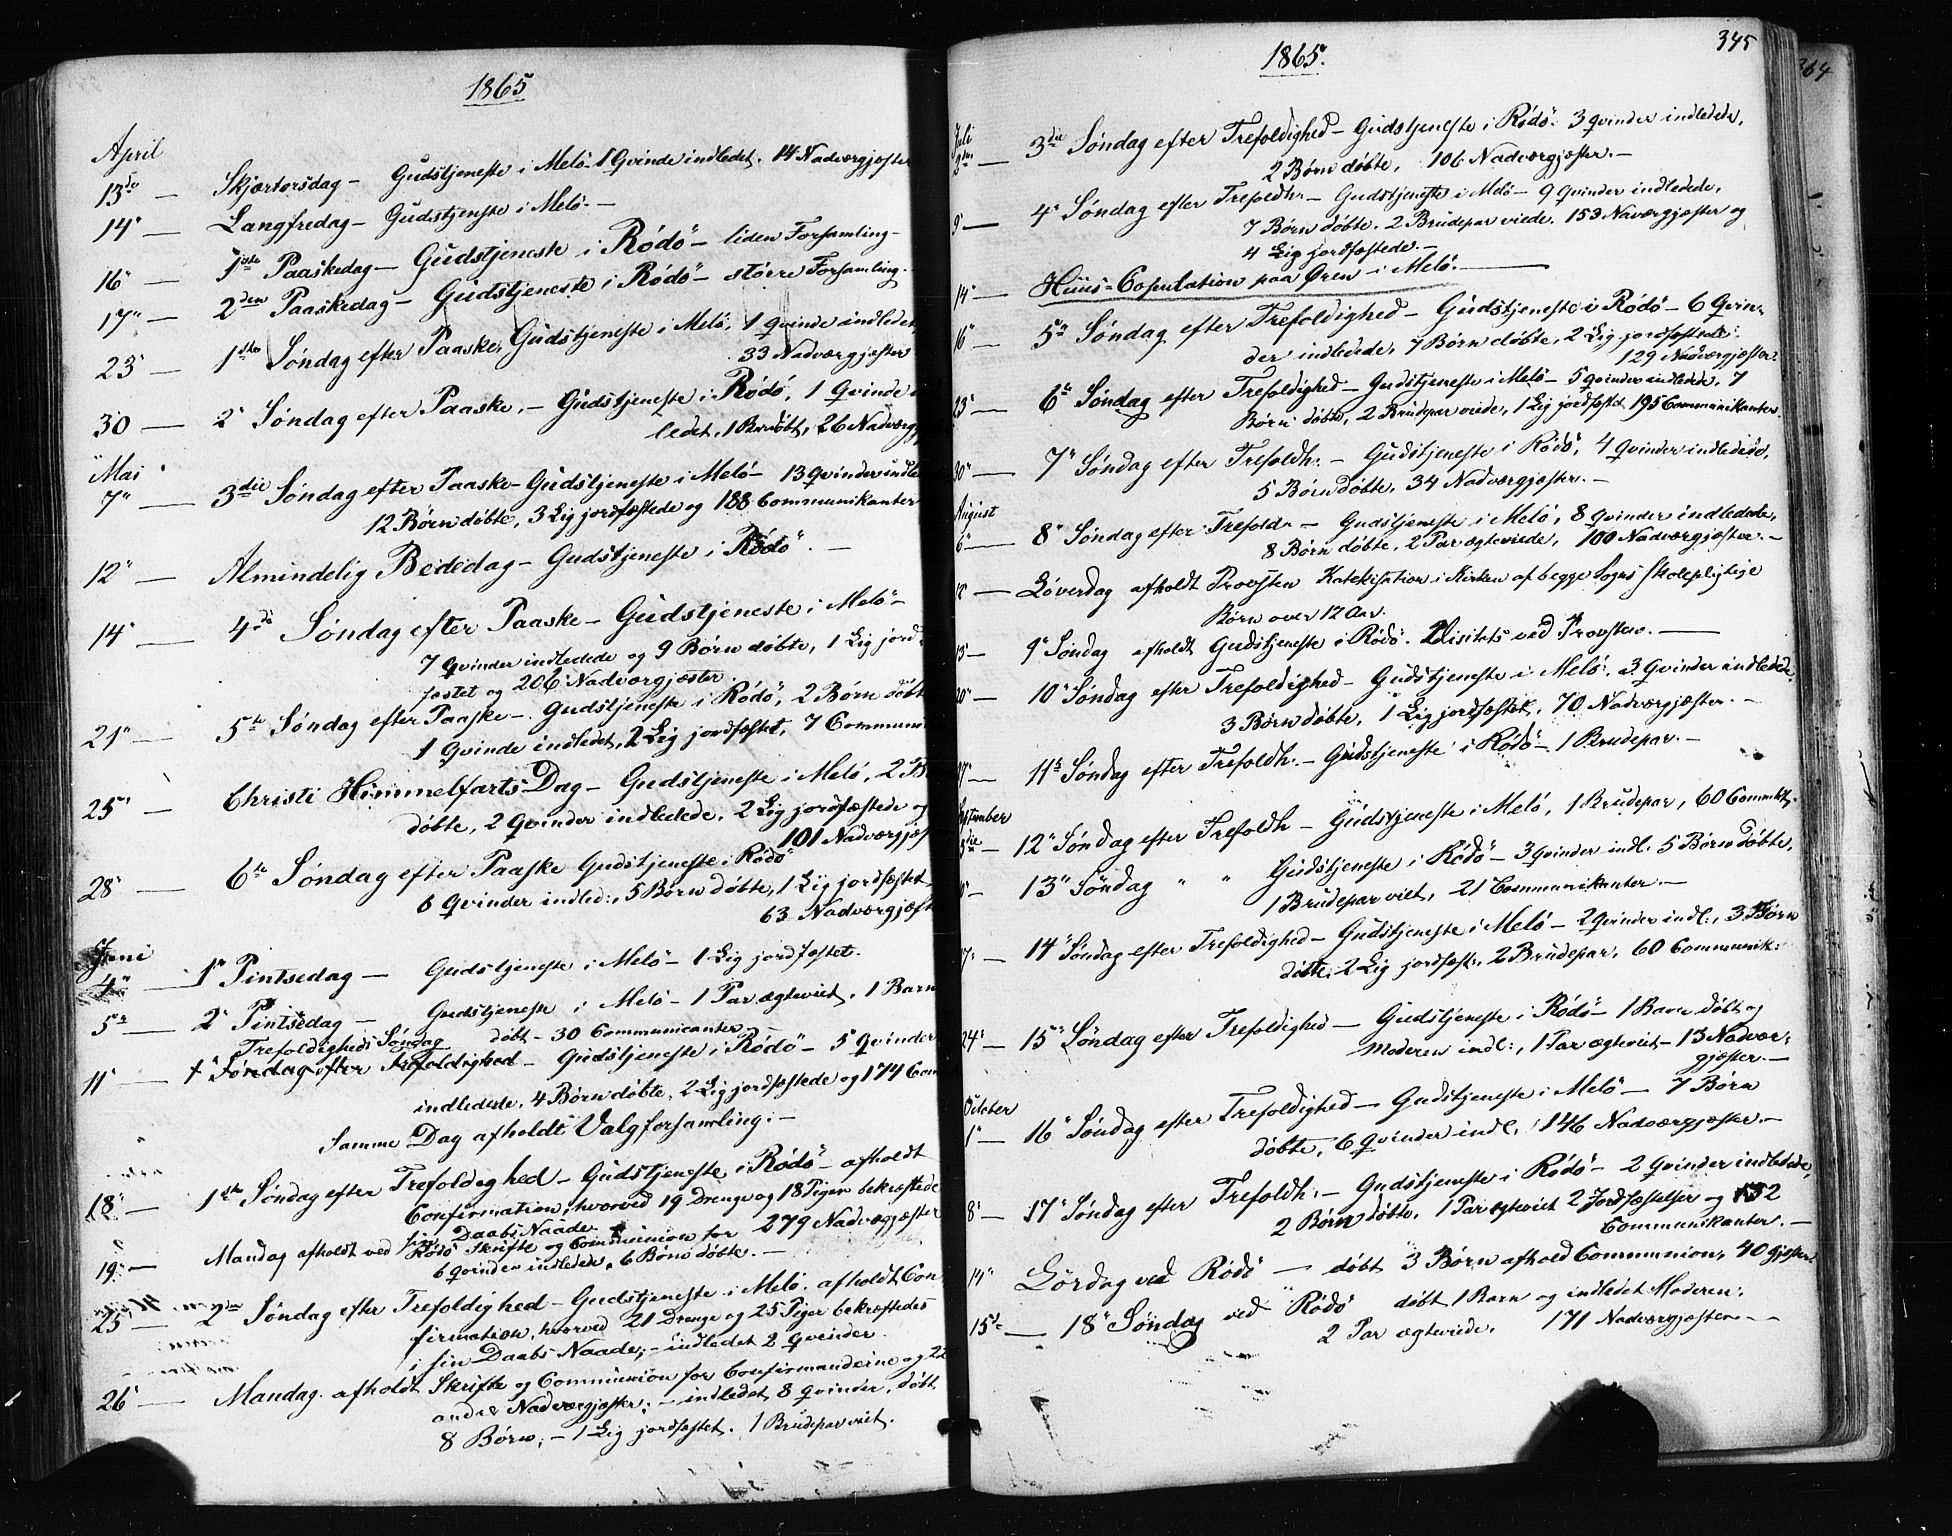 1865
April
13de — Skjærtorsdag — Gudstjeneste i Melö. 1 Qvinde indledet. 14 Nadvergjæster
14" — Langfredag — Gudstjeneste i Melö. —
16" — 1ste Paaskedag — Gudstjeneste i Rödö — liden Forsamling —
17" — 2den Paaskedag — Gudstjeneste i Rödö — större Forsamling. —
23" — 1ste Söndag efter Paaske, Gudstjeneste i Melö, 1 Qvinde indledet
33 Nadvergjæster
30 — 2" Söndag efter Paaske, — Gudstjeneste i Rödö, 1 Qvinde
ledet, 1 Barn döbt, 26 Nadverg
Mai
7" — 3die Söndag efter Paaske — Gudstjeneste i Melö — 13 Qvinder indle
12 Börn döbte, 3 Lig jordfæstede og 188 Communikanter
12" — Almindelig Bededag — Gudstjeneste i Rödö. —
14" — 4de Söndag efter Paaske — Gudstjeneste i Melö —
7 Qvinder indledede og 9 Börn döbte, 1 Lig jord
fæstet og 206 Nadvergjæster
21" — 5te Söndag efter Paaske — Gudstjeneste i Rödö, 2 Börn döbt
1 Qvinde indledet, 2 Lig jordfæstet, 7 Communi
25" — Christi Himmelfarts Dag — Gudstjeneste i Melö, 2 B
döbte, 2 Qvinder indledede, 2 Lig jordfæstede og
101 Nadvergjæs
28" — 6te Söndag efter Paaske Gudstjeneste i Rödö
6 Qvinder indled:, 5 Börn döbte, 1 Lig jordfæstet
63 Nadvergjæst
Juni
4" — 1" Pintsedag — Gudstjeneste i Melö — 1 Lig jordfæstet.
5" — 2" Pintsedag — Gudstjeneste i Melö — 1 Par ægteviet, 1 Barn
döbt — 30 Communicanter
Trefoldigheds Söndag
11" — 1" Söndag efter Trefoldighed — Gudstjeneste i Rödö — 5 Qvinder
indledede, 4 Börn döbte, 2 Lig jordfæstede og 174 Com
Samme Dag afholdt Valgforsamling. —
18" — 1ste Söndag efter Trefoldighed — Gudstjeneste i Rödö — afholdt
Confirmation, hvorved 19 Drenge og 18 Piger bekræftede
sin Daabs Naade
19" — Mandag afholdt ved Rödö Skrifte og Communion for 279 Nadvergjæster
6 Qvinder indledede, 6 Börn döbte. —
25" — 2den Söndag efter Trefoldighed — Gudstjeneste i Melö, afholdt Con
firmation, hvorved 21 Drenge og 25 Piger bekræftedes
i sin Daabs Naade; — indledet 2 Qvinder
26" — Mandag afholdt Skrifte og Communion for Confirmanderne og 22
andre Nadvergjæster; — indledet 8 Qvinder, döbt
8 Börn; — 1 Lig jordfæstet. 1 Brudepar viet.
1865.
345
364
Juli
2den — 3die Söndag efter Trefoldighed — Gudstjeneste i Rödö. 3 Qvinder indledede,
2 Börn döbte, 106 Nadvergjæster. —
9 — 4" Söndag efter Trefoldh. — Gudstjeneste i Melö — 9 Qvinder indledede,
7 Börn döbte, 2 Brudepar viede. 153 Naværgjæster og
4 Lig jordfæstede. —
14" — Huus-Copulation paa Ören i Melö. —
16" — 5te Söndag efter Trefoldighed — Gudstjeneste i Rödö — 6 Qvin-
der indledede, 7 Börn döbte, 2 Lig jordfæstede.
129 Nadvergjæster.
23" — 6te Söndag efter Trefoldighed — Gudstjeneste i Melö — 5 Qvinder indledede, 7
Börn döbte, 2 Brudepar viede, 1 Lig jordfæstet 195 Communikanter.
30" — 7" Söndag efter Trefoldh: — Gudstjeneste i Rödö, 4 Qvinder indledede,
5 Börn döbte, 34 Nadvergjæster. —
August
6" — 8" Söndag efter Trefold. — Gudstjeneste i Melö, 8 Qvinder indledede,
8 Börn döbte, 2 Par ægteviede, 100 Nadvergjæster. —
12 — Löverdag afholdt Provsten Katekisation i Kirken af begge Sogns Skolepligtige
Börn over 12 Aar.
13" — 9" Söndag afholdt Gudstjeneste i Rödö. Visitats ved Provsten. —
20" — 10" Söndag efter Trefoldighed — Gudstjeneste i Melö. 3 Qvinder indledede,
3 Börn döbte, 1 Lig jordfæstet, 70 Nadvergjæster. —
27" — 11te Söndag efter Trefoldh. — Gudstjeneste i Rödö — 1 Brudepar. —
September
3die — 12" Söndag efter Trefoldh — Gudstjeneste i Melö, 1 Brudepar, 60 Commkt.
13" Söndag " " Gudstjeneste i Rödö — 3 Qvinder indl. 5 Börn döbte,
1 Brudepar viet, 21 Communikanter. —
14" Söndag efter Trefoldighed — Gudstjeneste i Melö — 2 Qvinder indl:, 3 Börn
döbte, 2 Lig jordfæst:, 2 Brudepar, 60 Communik:
24" — 15" Söndag efter Trefoldighed — Gudstjeneste i Rödö — 1 Barn döbt og
Moderen indl:, 1 Par ægteviet — 13 Nadver-
gjæster. —
October
1" — 16" Söndag efter Trefoldighed — Gudstjeneste i Melö — 7 Börn
döbte, 6 Qvinder indl, 146 Nadvergjæster. —
8" — 17" Söndag efter Trefoldh: — Gudstjeneste i Rödö — 2 Qvinder indledede,
2 Börn döbte, 1 Par ægteviet 2 Jordfæstelser og 132
Communikanter. —
14" Lördag ved Rödö — döbt 3 Börn afhold Communion, 40 Gjæster.
15de — 18" Söndag ved Rödö döbt 1 Barn og indledet Moderen;
2 Par ægteviede, 171 Nadvergjæster — -